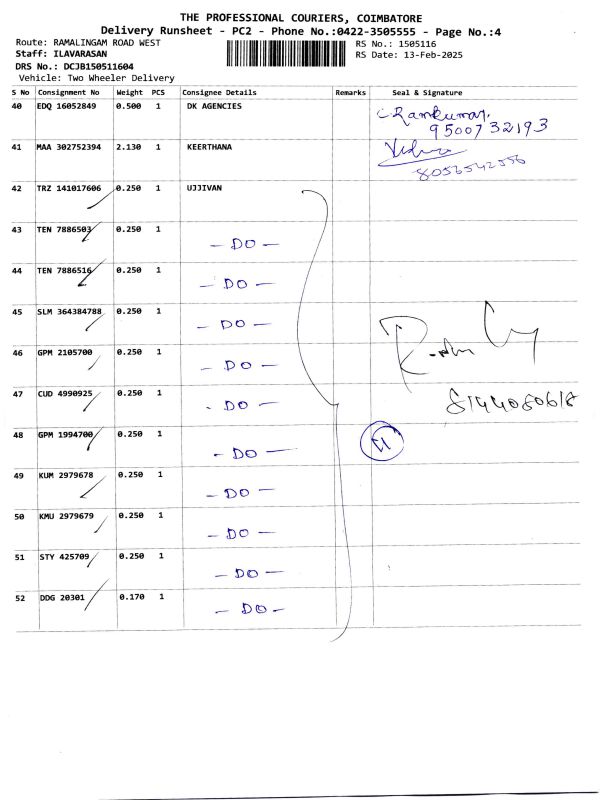 THE PROFESSIONAL COURIERS, COIMBATORE
Delivery Runsheet - PC2 - Phone No.:0422-3505555 - Page No.:4
Route: RAMALINGAM ROAD WEST
Staff: ILAVARASAN
DRS No.: DCJB150511604
Vehicle: Two Wheeler Delivery
RS No.: 1505116
RS Date: 13-Feb-2025
S No Consignment No Weight PCS Consignee Details Remarks Seal & Signature
40 EDQ 16052849 0.500 1 DK AGENCIES Ramkumar.
9500732193
41 MAA 302752394 2.130 1 KEERTHANA
8056542556
42 TRZ 141017606 0.250 1 UJJIVAN
43 TEN 7886503 0.250 1 - DO -
44 TEN 7886516 0.250 1 - DO -
45 SLM 364384788 0.250 1 - DO -
46 GPM 2105700 0.250 1 - DO -
47 CUD 4990925 0.250 1 - DO - 8144080618
48 GPM 1994700 0.250 1 - DO - 11
49 KUM 2979678 0.250 1 - DO -
50 KMU 2979679 0.250 1 - DO -
51 STY 425709 0.250 1 - DO -
52 DDG 20301 0.170 1 - DO -